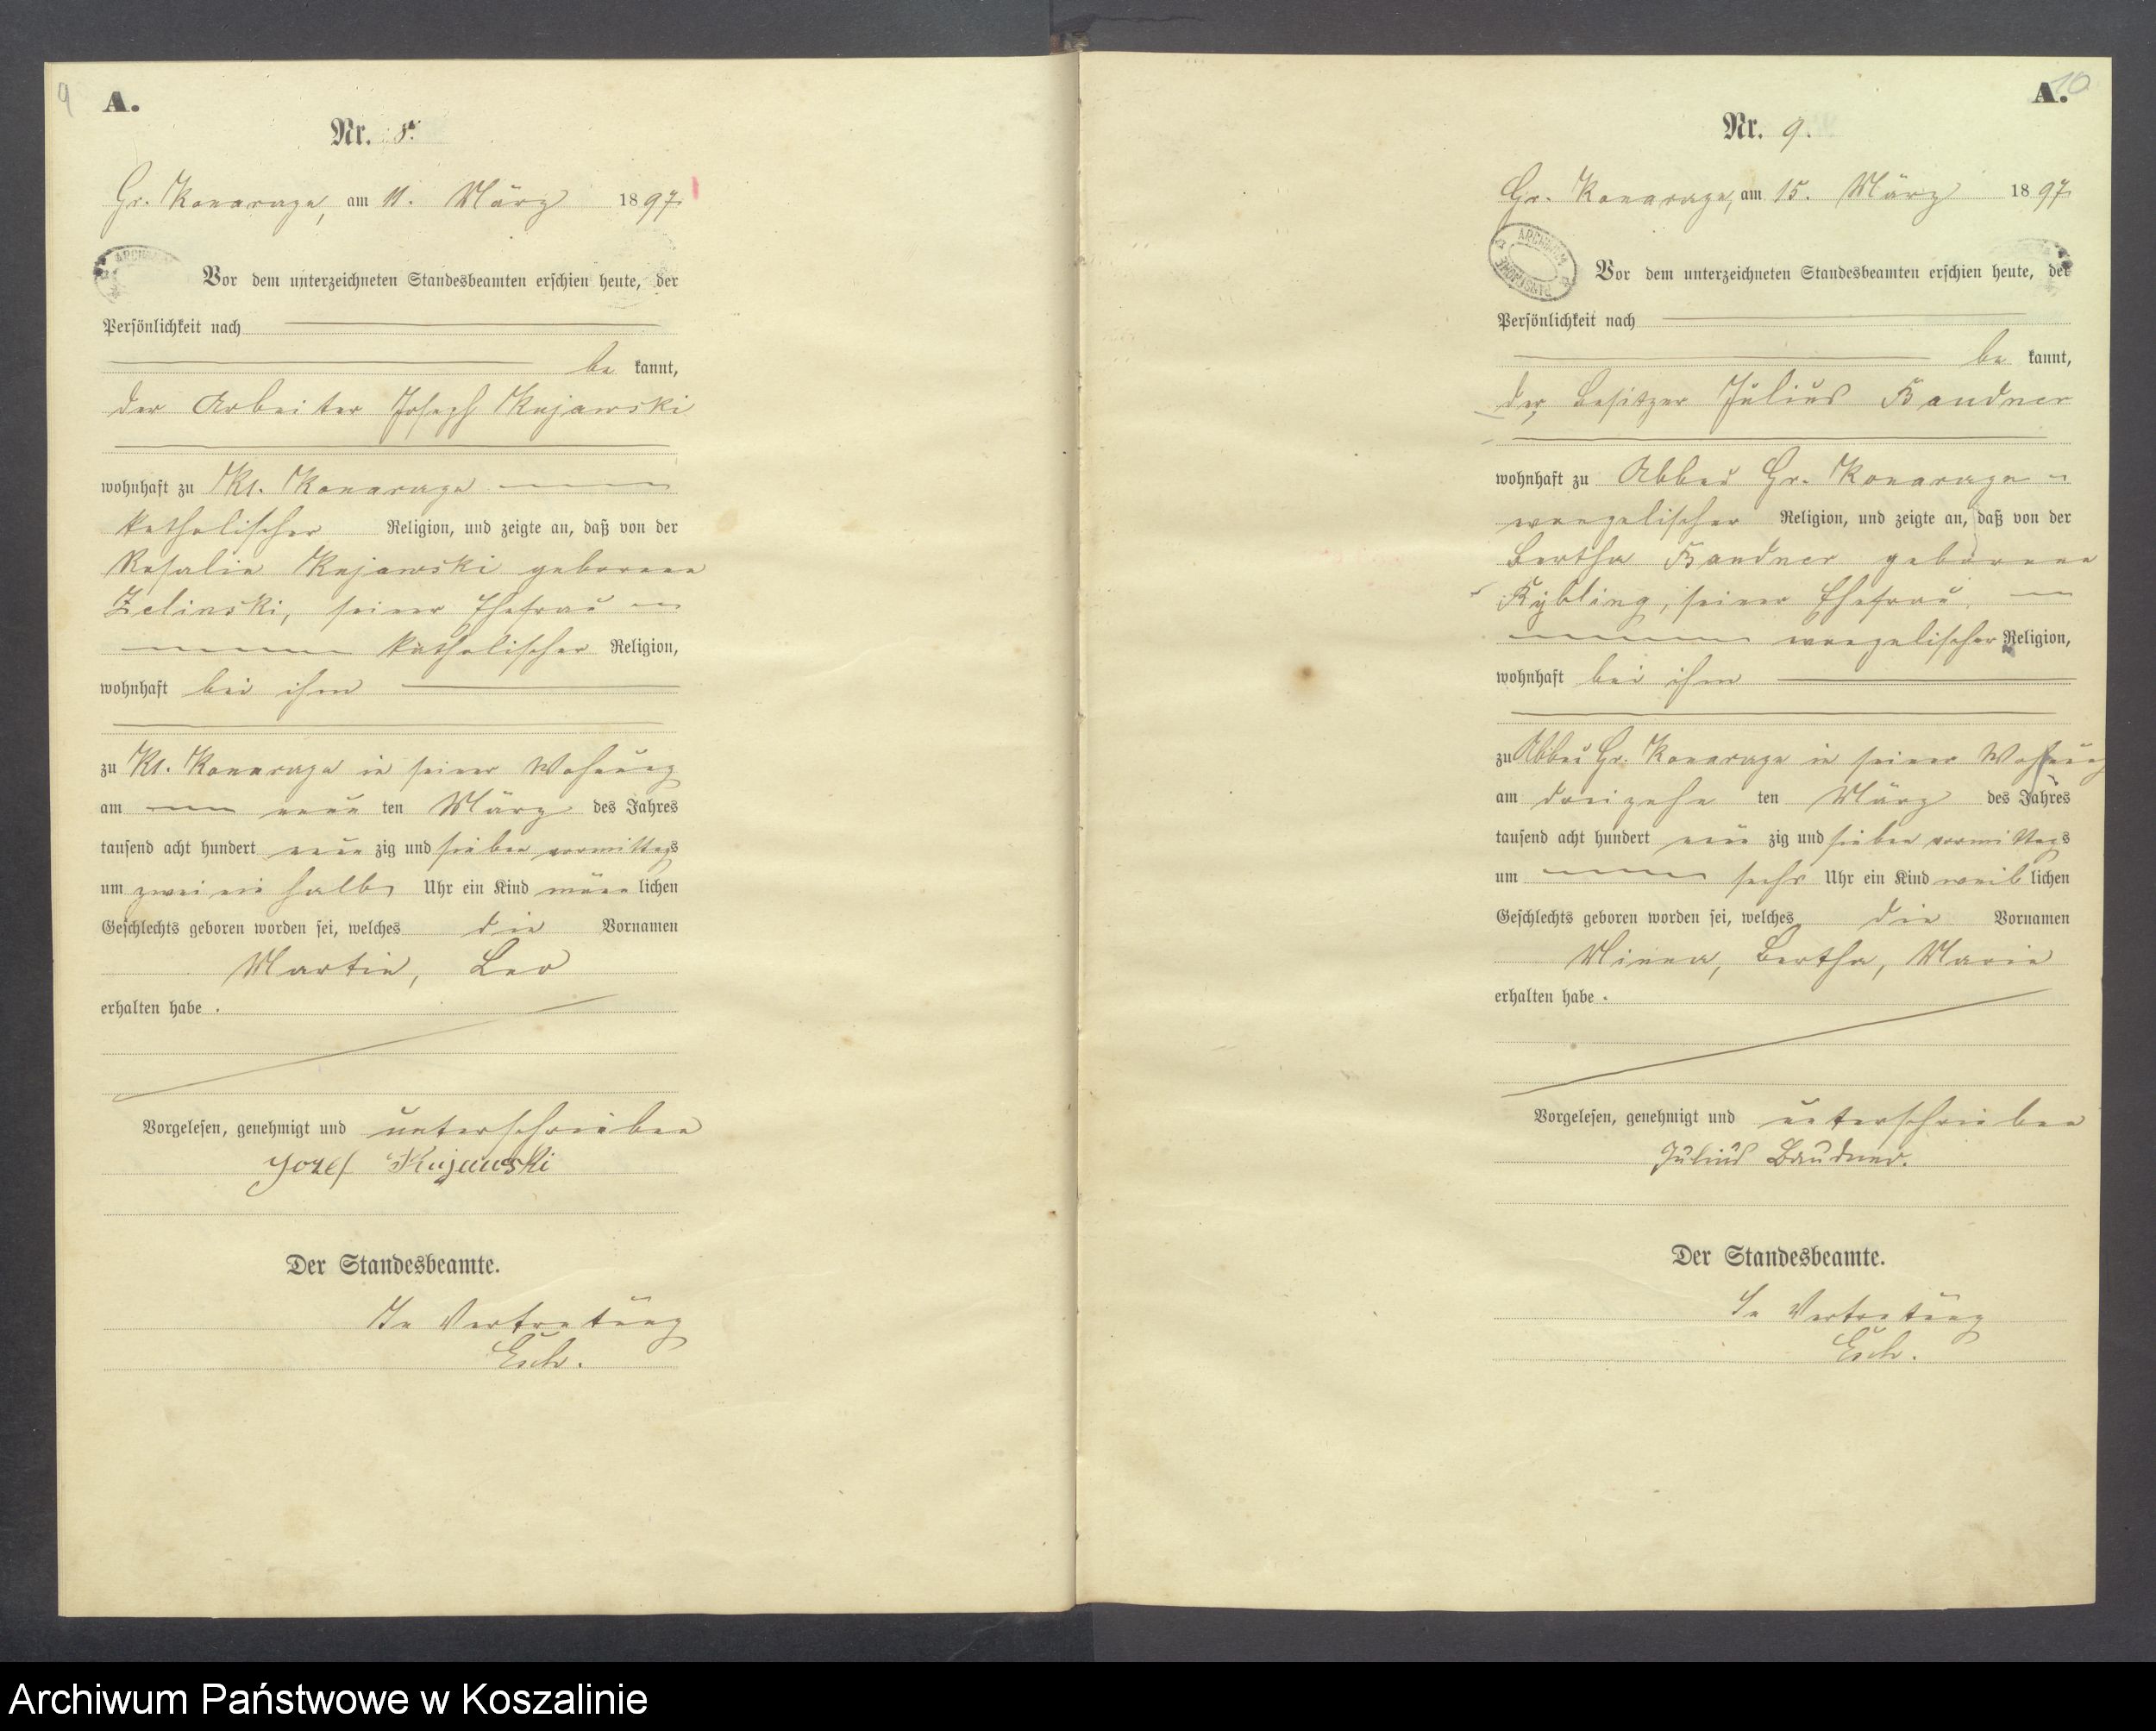 9
A.
Nr. 8.
Gr. Konarzyn, am 11. März 1897
Vor dem unterzeichneten Standesbeamten erschien heute, der
Persönlichkeit nach
be kannt,
der Arbeiter Joseph Kujawski
wohnhaft zu Kl. Konarzyn
katholischer Religion, und zeigte an, daß von der
Rosalie Kujawski geborene
Zelinski, seiner Ehefrau
katholischer Religion,
wohnhaft bei ihm
zu Kl. Konarzyn in seiner Wohnung
am neun ten März des Jahres
tausend acht hundert neun zig und sieben vormittags
um zwei ein halb Uhr ein Kind männ lichen
Geschlechts geboren worden sei, welches die Vornamen
Martin, Leo
erhalten habe.
Vorgelesen, genehmigt und unterschrieben
Jozef Kujawski
Der Standesbeamte.
In Vertretung
Esch.
A.
10
Nr. 9.
Gr. Konarzyn, am 15. März 1897
ARCHIWUM PAŃSTWOWE
Vor dem unterzeichneten Standesbeamten erschien heute, der
Persönlichkeit nach
be kannt,
der Besitzer Julius Baudner
wohnhaft zu Abbau Gr. Konarzyn
evangelischer Religion, und zeigte an, daß von der
Bertha Baudner geborene
seiner Ehefrau
evangelischer Religion,
wohnhaft bei ihm
zu Abbau Gr. Konarzyn in seiner Wohnung
am dreizehn ten März des Jahres
tausend acht hundert neun zig und sieben vormittags
um sechs Uhr ein Kind weib lichen
Geschlechts geboren worden sei, welches die Vornamen
Minna, Bertha, Marie
erhalten habe.
Vorgelesen, genehmigt und unterschrieben
Julius Baudner.
Der Standesbeamte.
In Vertretung
Esch.
Archiwum Państwowe w Koszalinie